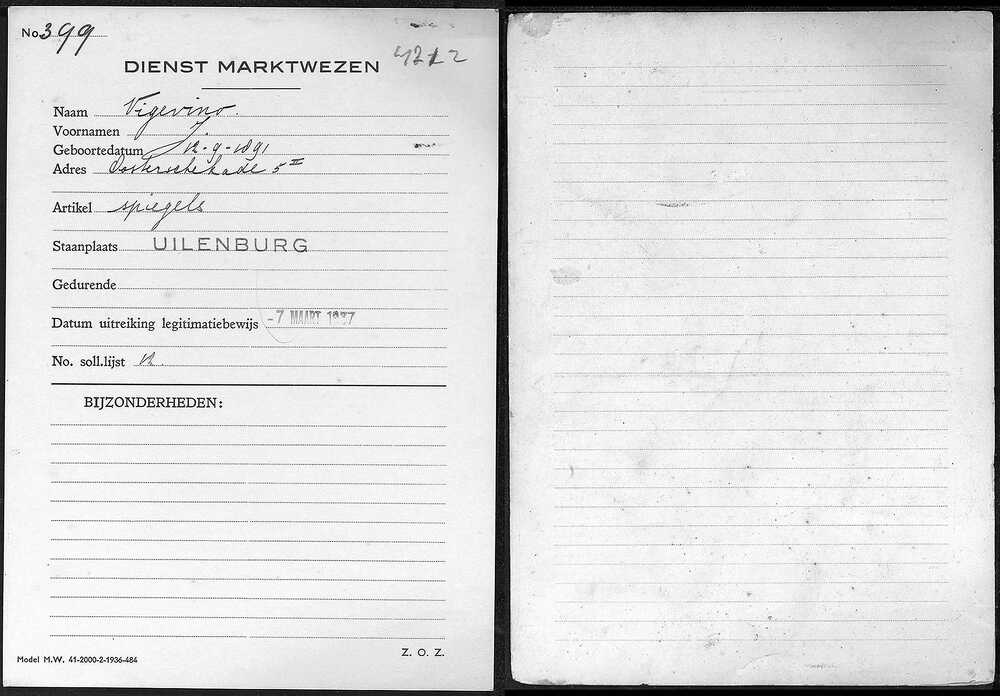 No. 399
4212
DIENST MARKTWEZEN
Naam Vigevino.
Voornamen J.
Geboortedatum 12-9-1891
Adres Oosterschekade 5 II
Artikel spiegels
Staanplaats UILENBURG
Gedurende
Datum uitreiking legitimatiebewijs -7 MAART 1937
No. soll.lijst 12.
BIJZONDERHEDEN:
Model M.W. 41-2000-2-1936-484
Z. O. Z.